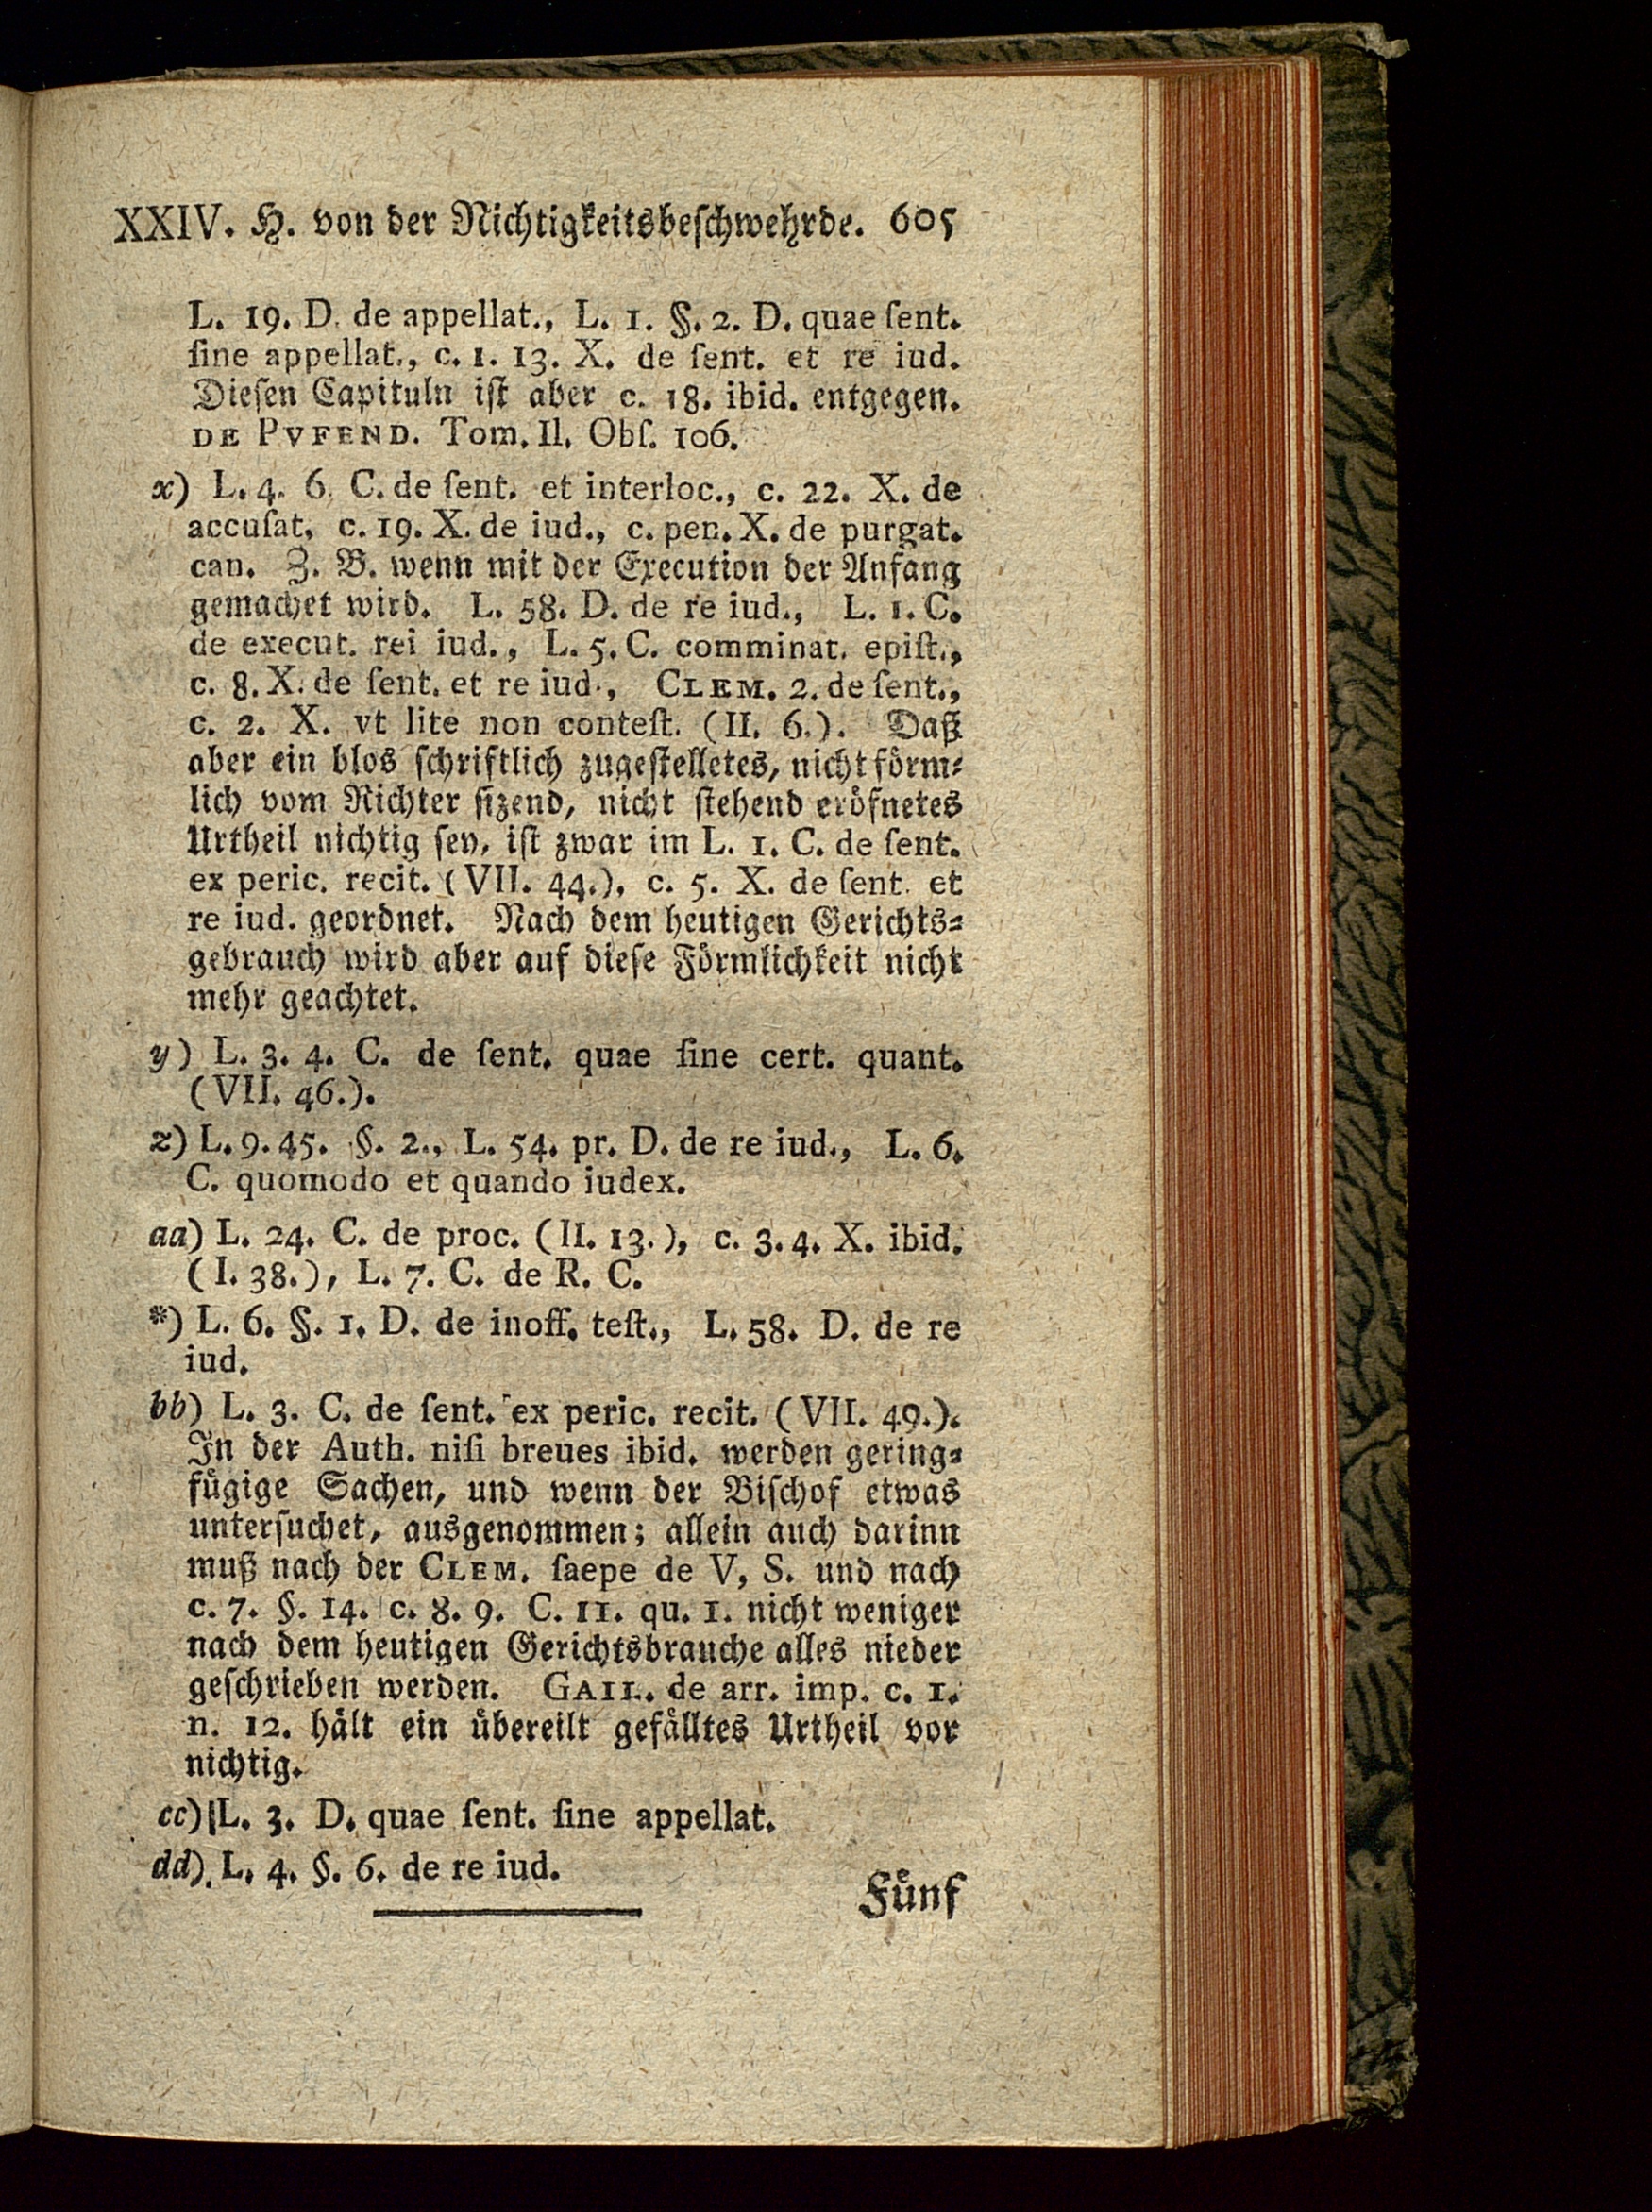 XXIV. H. von der Nichtigkeitsbeschwehrde. 605
L. 19. D. de appellat., L. 1. §. 2. D. quae ſent.
ſine appellat., c. 1. 13. X. de ſent. et re iud.
Dieſen Capituln iſt aber c. 18. ibid. entgegen.
DE PVFEND. Tom. II. Obſ. 106.
x) L. 4. 6. C. de ſent. et interloc., c. 22. X. de
accuſat, c. 19. X. de iud., c. pen. X. de purgat.
can. Z. B. wenn mit der Execution der Anfang
gemachet wird. L. 58. D. de re iud., L. 1. C.
de execut. rei iud., L. 5. C. comminat. epiſt.,
c. 8. X. de ſent. et re iud., CLEM. 2. de ſent.,
c. 2. X. vt lite non conteſt. (II. 6.). Daß
aber ein blos ſchriftlich zugeſtelletes, nicht förm⸗
lich vom Richter ſizend, nicht ſtehend eröfnetes
Urtheil nichtig ſey, iſt zwar im L. 1. C. de ſent.
ex peric. recit. (VII. 44.), c. 5. X. de ſent. et
re iud. geordnet. Nach dem heutigen Gerichts⸗
gebrauch wird aber auf dieſe Förmlichkeit nicht
mehr geachtet.
y) L. 3. 4. C. de ſent. quae ſine cert. quant.
(VII. 46.).
z) L. 9. 45. §. 2., L. 54. pr. D. de re iud., L. 6.
C. quomodo et quando iudex.
aa) L. 24. C. de proc. (II. 13.), c. 3. 4. X. ibid.
(I. 38.), L. 7. C. de R. C.
*) L. 6. §. 1. D. de inoff. teſt., L. 58. D. de re
iud.
bb) L. 3. C. de ſent. ex peric. recit. (VII. 49.).
In der Auth. niſi breues ibid. werden gering⸗
fügige Sachen, und wenn der Biſchof etwas
unterſuchet, ausgenommen; allein auch darinn
muß nach der CLEM. ſaepe de V, S. und nach
c. 7. §. 14. c. 8. 9. C. 11. qu. 1. nicht weniger
nach dem heutigen Gerichtsbrauche alles nieder
geſchrieben werden. GAIL. de arr. imp. c. 1.
n. 12. hält ein übereilt gefälltes Urtheil vor
nichtig.
cc) L. 3. D. quae ſent. ſine appellat.
dd) L. 4. §. 6. de re iud.
Fünf